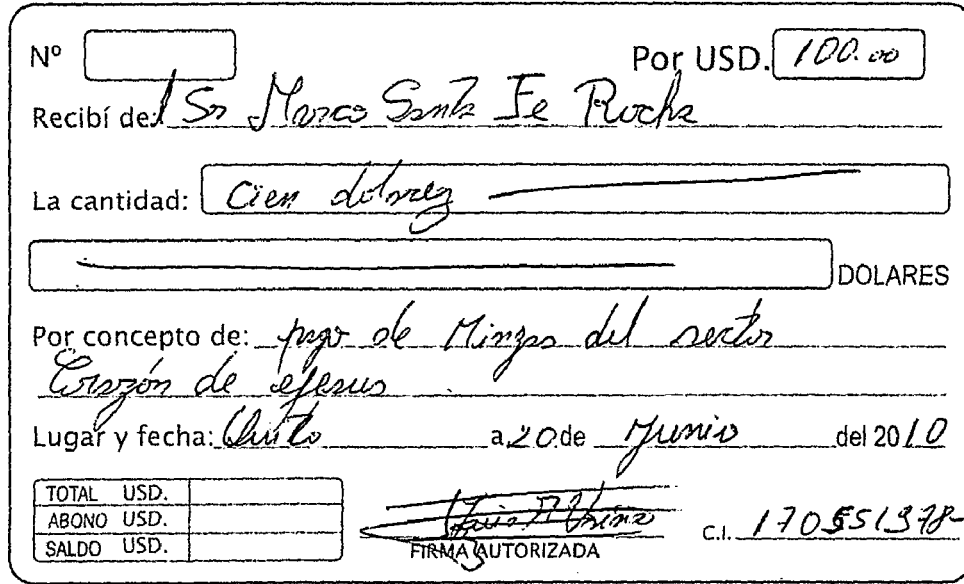 Nº Por USD. 100.00
Recibí de: Sr Marco Santa Fe Rocha
La cantidad: Cien dolarez
DOLARES
Por concepto de: pago de Mingas del sector
Corazón de ejesus
Lugar y fecha: Quito a 20 de Junio del 2010
TOTAL USD.
ABONO USD.
SALDO USD.
FIRMA AUTORIZADA C.I.